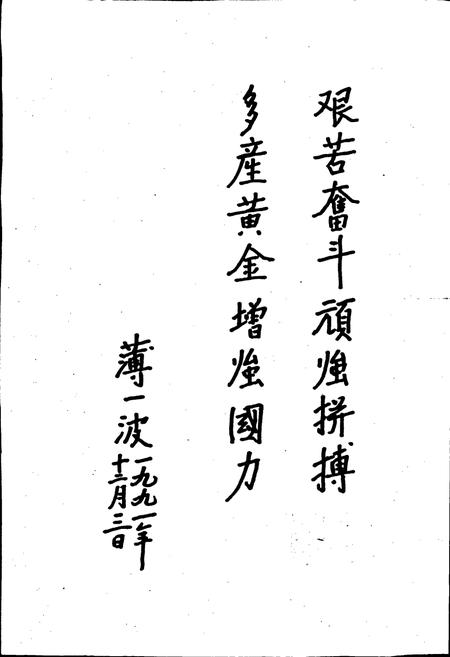 艰苦奮斗頑強拼搏
多產黃金增強國力
薄一波
一九九一年
十二月三日